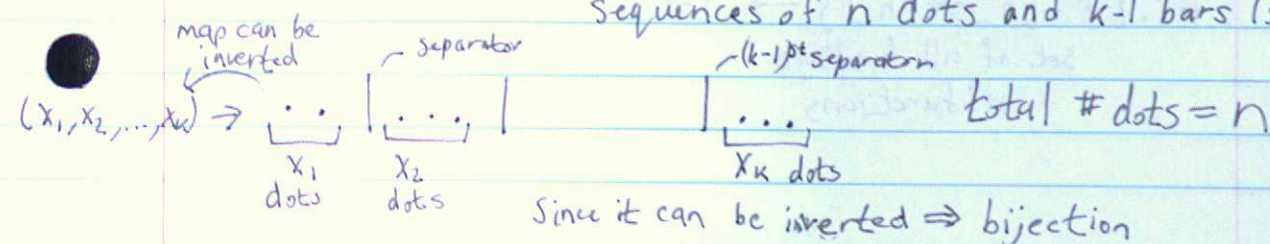 Sequences of n dots and k-1 bars (s
map can be
inverted
separator
(k-1)st separator
(x₁, x₂, ..., xₖ) → . . | . . . | | . . . total # dots = n
x₁ x₂ xₖ dots
dots dots
Since it can be inverted ⇒ bijection